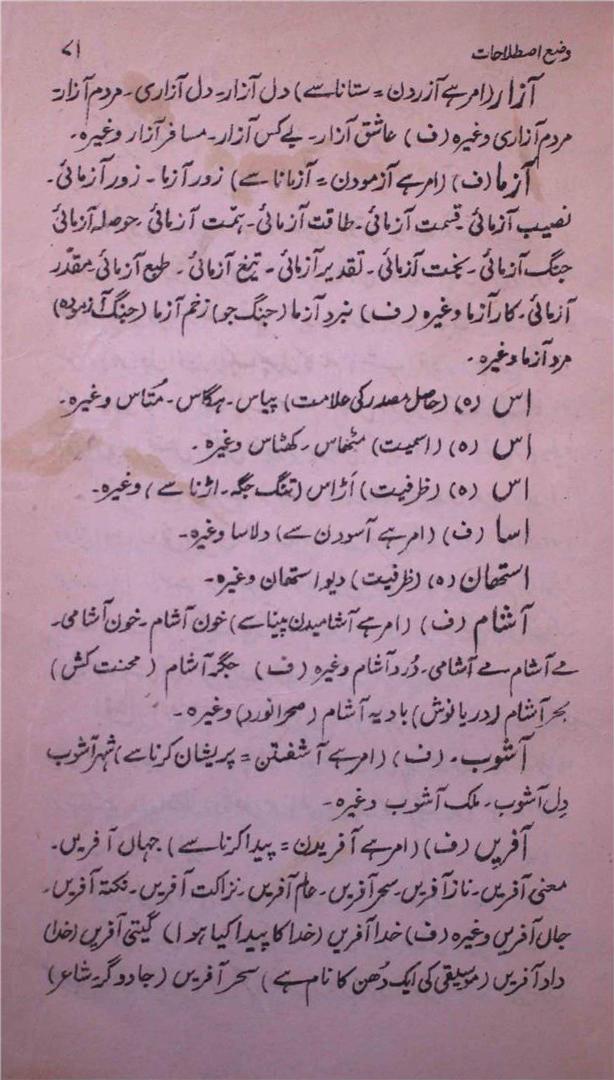 وضع اصطلاحات ۷۱
آزار (امر ہے آزردن = ستانا سے) دل آزار۔ دل آزاری۔ مردم آزار۔
مردم آزاری وغیرہ (ف) عاشق آزار۔ بے کس آزار۔ مسافر آزار وغیرہ۔
آزما (ف) (امر ہے آزمودن = آزمانا سے) زور آزما۔ زور آزمائی۔
نصیب آزمائی۔ قسمت آزمائی۔ طاقت آزمائی۔ ہمّت آزمائی۔ حوصلہ آزمائی
جنگ آزمائی۔ بخت آزمائی۔ تقدیر آزمائی۔ تیغ آزمائی۔ طبع آزمائی۔ مقدّر
آزمائی۔ کار آزما وغیرہ (ف) نبرد آزما (جنگ جو) زخم آزما (جنگ آزمودہ)
مرد آزما وغیرہ۔
اس (ہ) (حاصل مصدر کی علامت) پیاس۔ ہگاس۔ مُتاس وغیرہ۔
اس (ہ) (اسمیت) مٹھاس۔ کھٹاس وغیرہ۔
اس (ہ) (ظرفیت) اَڑاس (تنگ جگہ۔ اڑنا سے) وغیرہ۔
اسا (ف) (امر ہے آسودن سے) دلاسا وغیرہ۔
استھان (ہ) (ظرفیت) دیو استھان وغیرہ۔
آشام (ف) (امر ہے آشامیدن پینا سے) خون آشام۔ خون آشامی۔
مے آشام مے آشامی۔ دُرد آشام وغیرہ (ف) جگر آشام (محنت کش)
بحر آشام (دریا نوش) بادیہ آشام (صحرا نورد) وغیرہ۔
آشوب۔ (ف) (امر ہے آشفتن = پریشان کرنا سے) شہر آشوب
دِل آشوب۔ ملک آشوب وغیرہ۔
آفریں (ف) (امر ہے آفریدن = پیدا کرنا سے) جہاں آفریں۔
معنی آفریں۔ ناز آفریں۔ سحر آفریں۔ عالم آفریں۔ نزاکت آفریں۔ نکتہ آفریں۔
جاں آفریں وغیرہ (ف) خدا آفریں (خدا کا پیدا کیا ہوا) گیتی آفریں (خدا)
داد آفریں (موسیقی کی ایک دُھن کا نام ہے) سحر آفریں (جادوگر۔ شاعر)